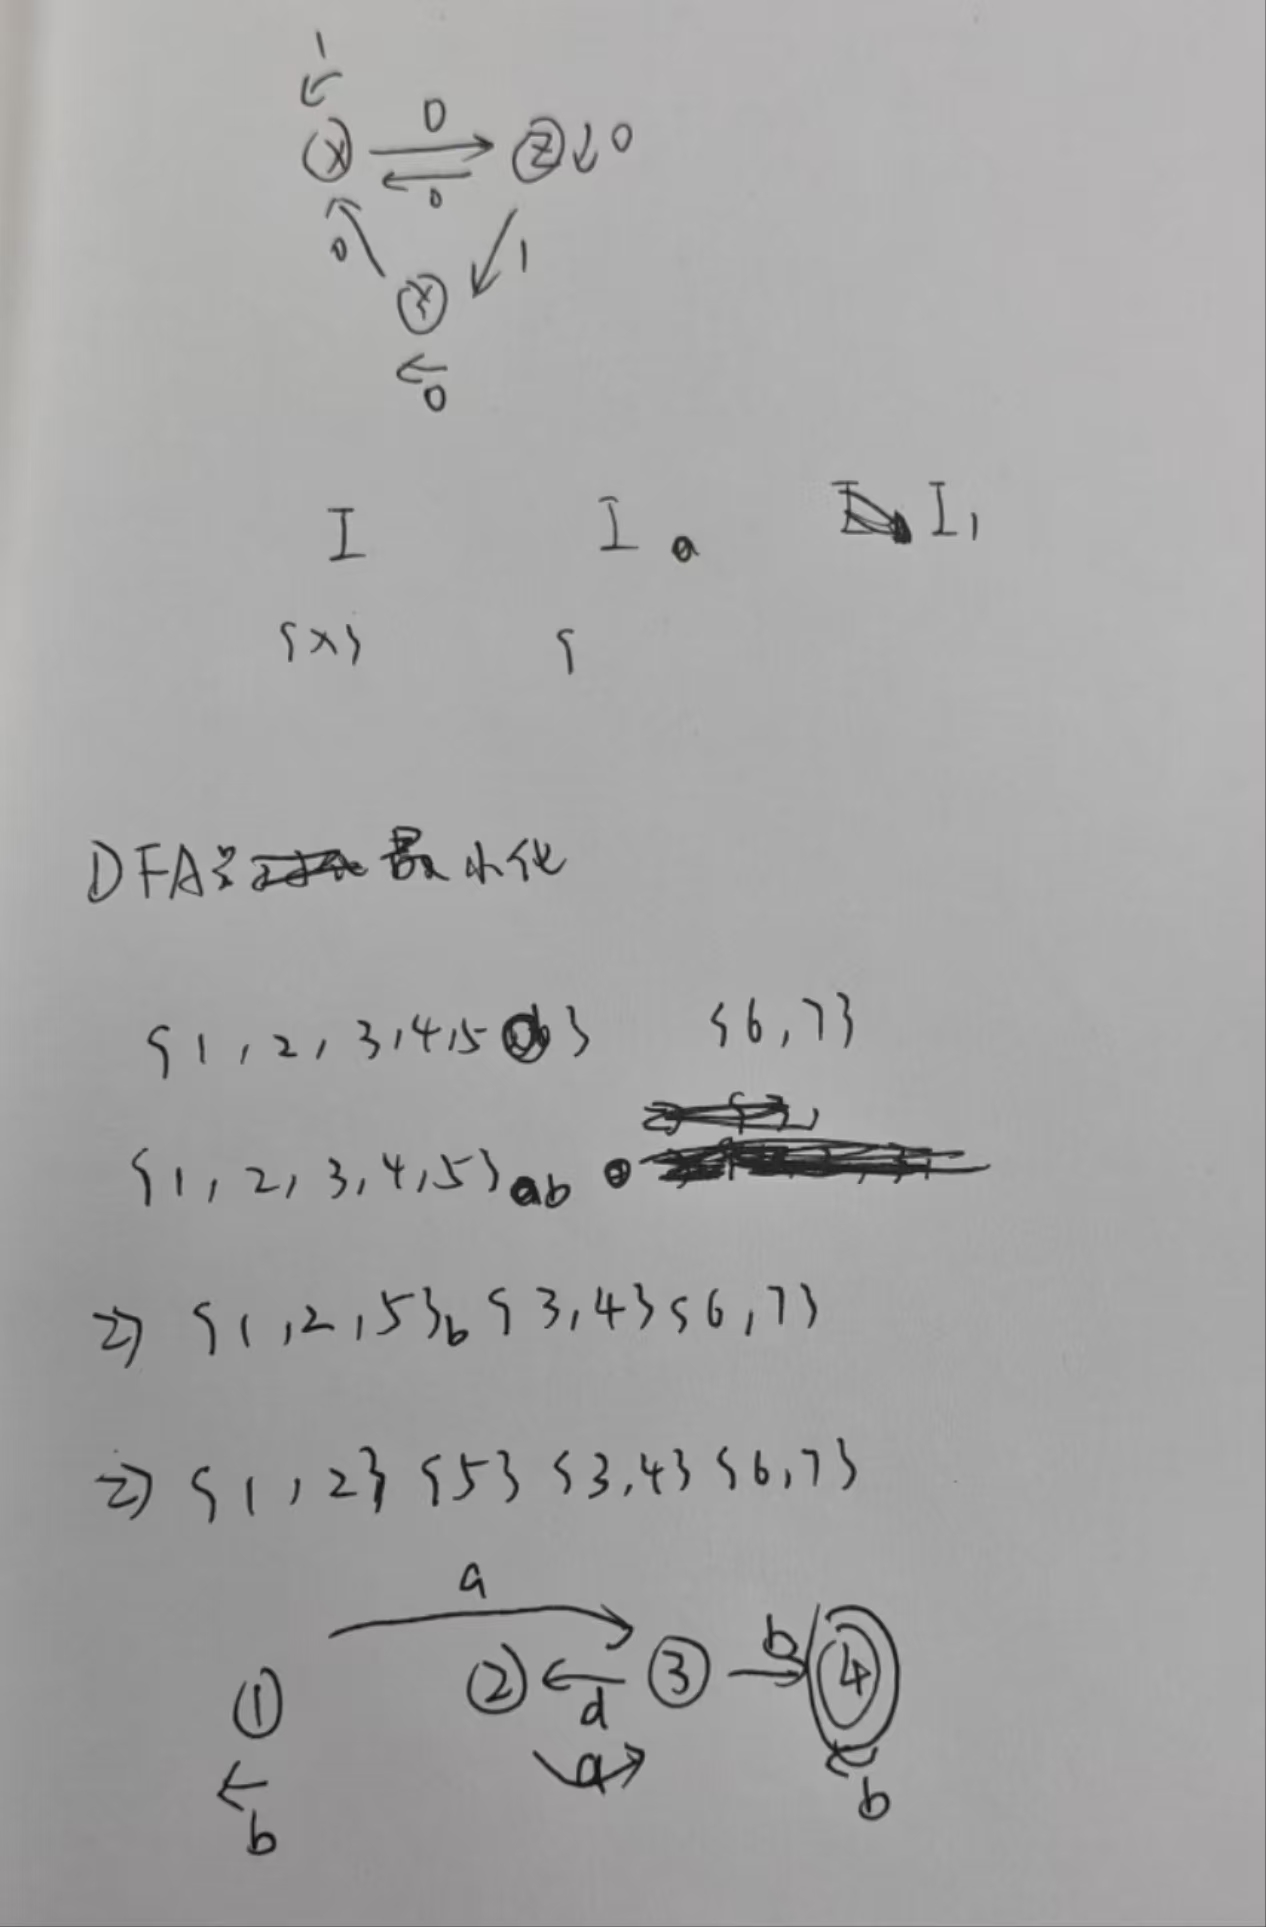 1
X 0 Z 0
0
0 1
Y
0
I I 0 I1
{X} {
DFA 最小化
{1,2,3,4,5} {6,7}
{1,2,3,4,5}ab
=> {1,2,5}b {3,4} {6,7}
=> {1,2} {5} {3,4} {6,7}
a
① ② ③ b ④
d
a
b b